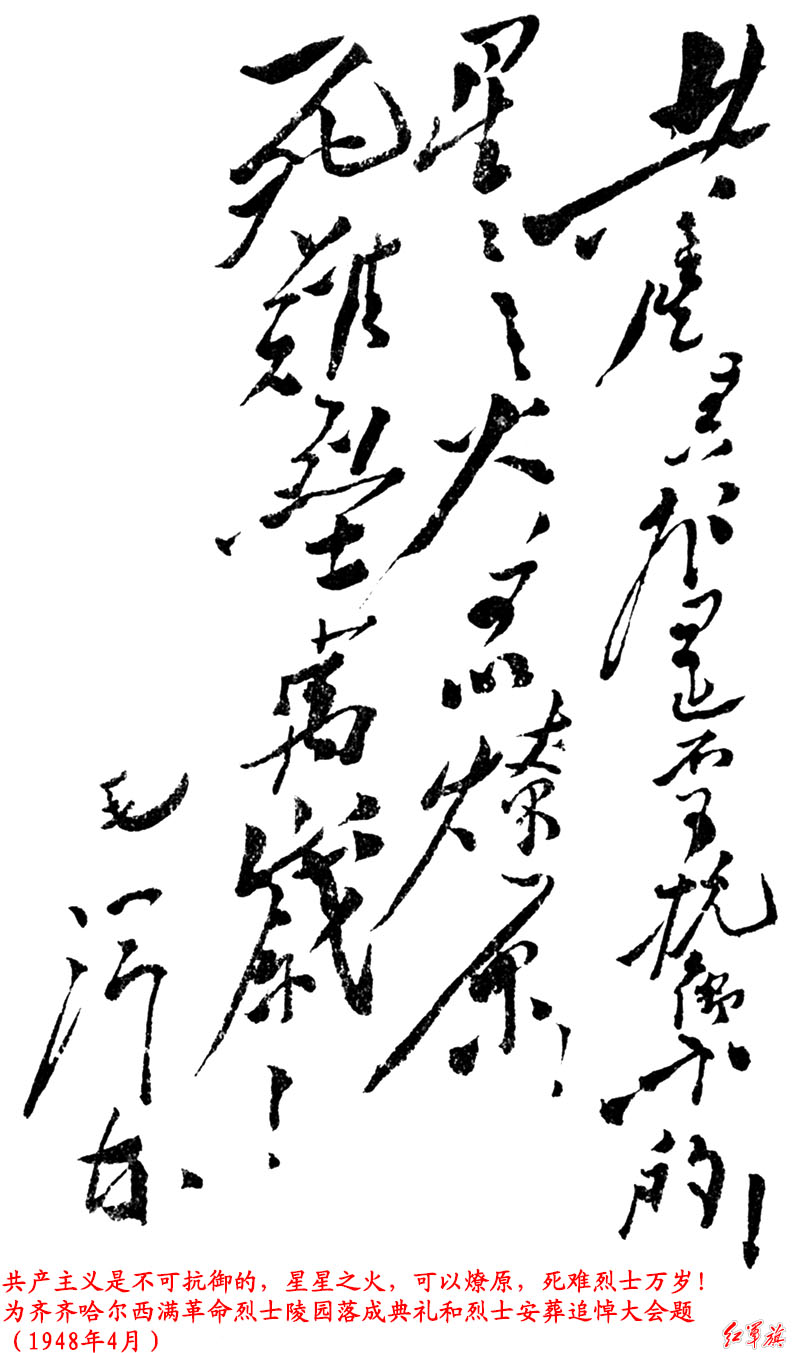 共產主義是不可抗禦的！
星々之火，可以燎原！
死難烈士萬歲！
毛澤东
共产主义是不可抗御的，星星之火，可以燎原，死难烈士万岁！
为齐齐哈尔西满革命烈士陵园落成典礼和烈士安葬追悼大会题
（1948年4月）
红军旗